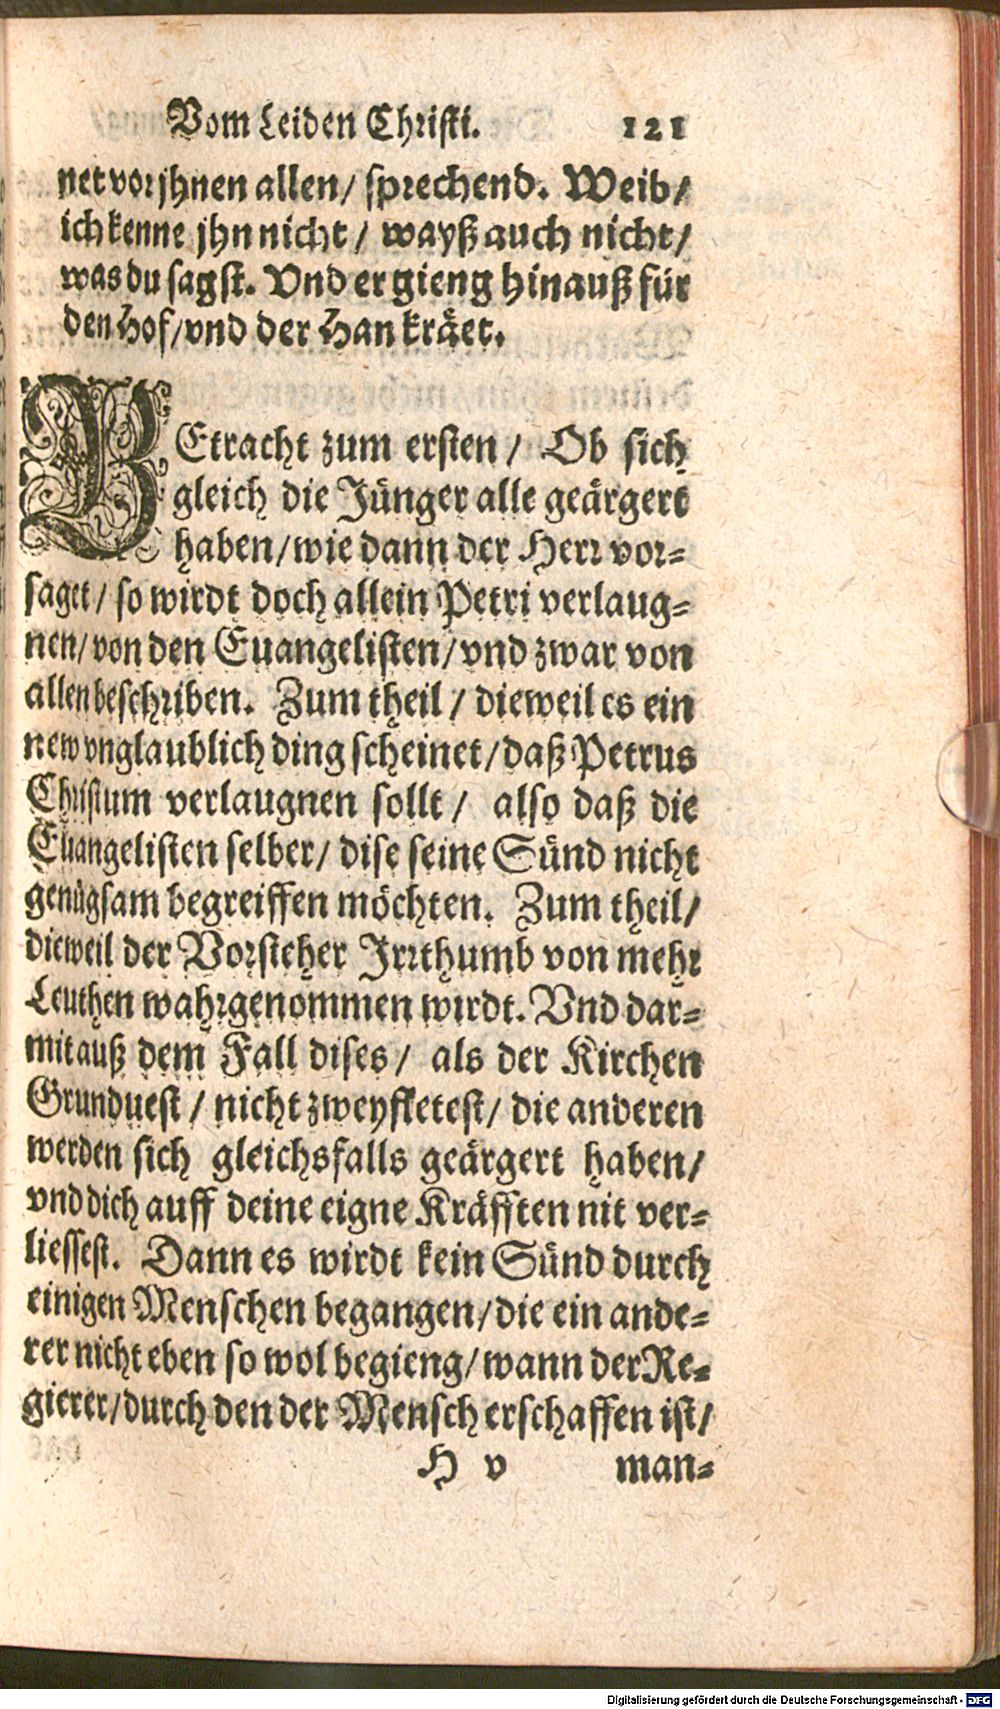 Vom Leiden Christi. 121
net vor jhnen allen/ sprechend. Weib/
ich kenne jhn nicht/ wayß auch nicht/
was du sagst. Vnd er gieng hinauß für
den Hof/ vnd der Han kräet.
BEtracht zum ersten/ Ob sich
gleich die Jünger alle geärgert
haben/ wie dann der Herr vor-
saget/ so wirdt doch allein Petri verlaug-
nen/ von den Euangelisten/ vnd zwar von
allen beschriben. Zum theil/ dieweil es ein
new vnglaublich ding scheinet/ daß Petrus
Christum verlaugnen sollt/ also daß die
Euangelisten selber/ dise seine Sünd nicht
genůgsam begreiffen möchten. Zum theil/
dieweil der Vorsteher Irrthumb von mehr
Leuthen wahrgenommen wirdt. Vnd dar-
mit auß dem Fall dises/ als der Kirchen
Grunduest/ nicht zweyfletest/ die anderen
werden sich gleichsfalls geärgert haben/
vnd dich auff deine eigne Kräfften nit ver-
liessest. Dann es wirdt kein Sünd durch
einigen Menschen begangen/ die ein ande-
rer nicht eben so wol begieng/ wann der Re-
gierer/ durch den der Mensch erschaffen ist/
H v man-
Digitalisierung gefördert durch die Deutsche Forschungsgemeinschaft - DFG